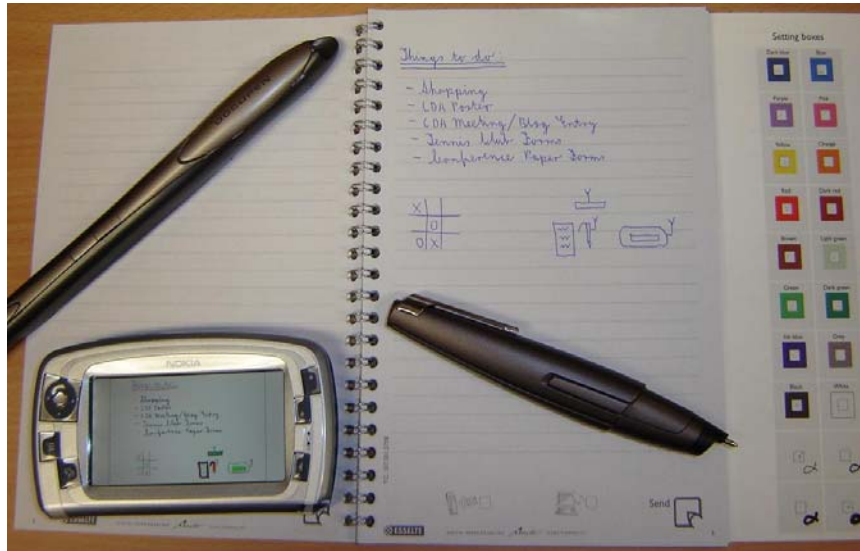 Things to do:
- Shopping
- CDA Poster
- CDA Meeting/Blog Entry
- Tennis Club Forms
- Conference Paper Forms
X
O
O X
NOKIA
Shopping
- CDA Poster
- CDA Meeting/Blog Entry
- Tennis Club Forms
- Conference Paper Forms
Send
ESSELTE
Setting boxes
Dark blue Blue
Purple Pink
Yellow Orange
Red Dark red
Brown Light green
Green Dark green
Grey
Black White